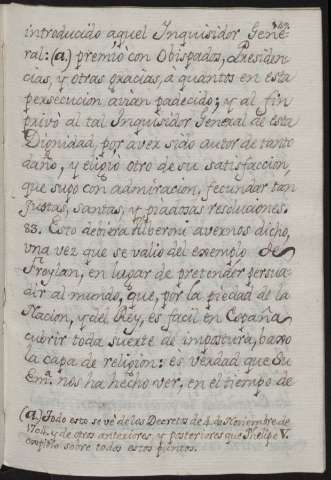 introducido aquel Inquisidor Gene-
ral: (a) premiò con Obispados, Presiden-
cias, y otras gracias, a quantos en esta
persecucion avian padecido; y al fin
privò al tal Inquisidor General de esta
Dignidad, por aver sido autor de tanto
daño, y eligiò otro de su satisfaccion,
que supo con admiracion, fecundar tan
justas, santas, y piadosas resoluciones.
83. Esto debiera Alberoni avernos dicho,
una vez que se valio del exemplo de
Froylan, en lugar de pretender persua-
dir al mundo, que, por la piedad de la
Nacion, y del Rey, es facil en España
cubrir toda suerte de impostura, baxo
la capa de religion: es verdad que Su
Em.ª nos ha hecho ver, en el tiempo de
(a) Todo esto se vè de los Decretos de 4. de Noviembre de
1704. y de otros anteriores, y posteriores que Phelipe V.
sobre todos estos puntos.